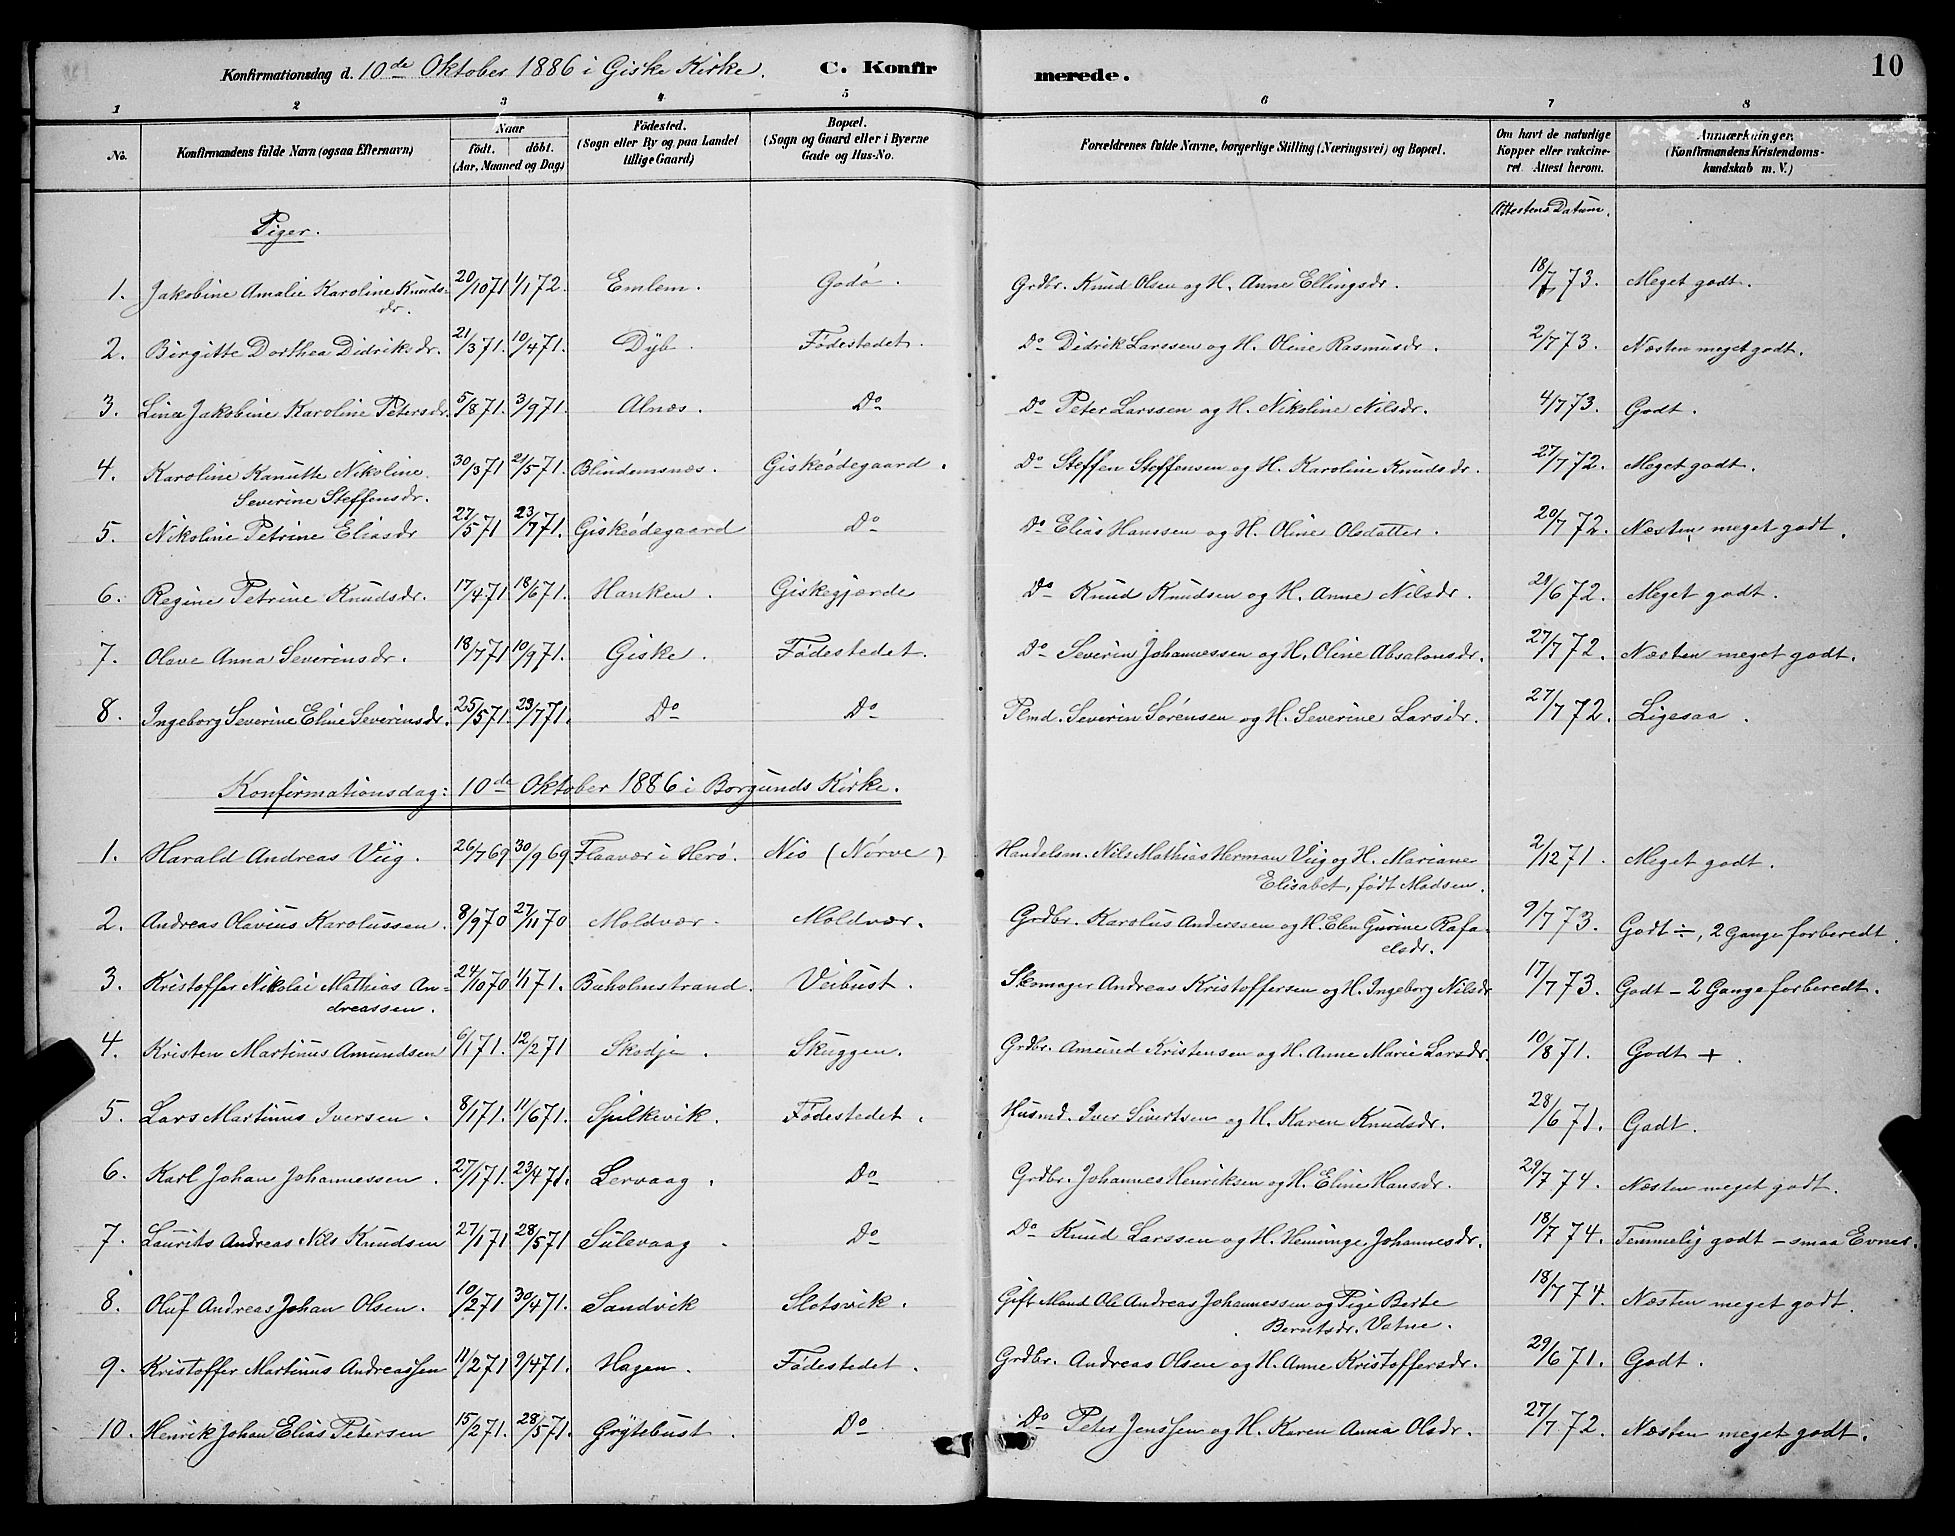 Konfirmationsdag d. 10de Oktober 1886 i Giske Kirke. C. Konfirmerede. 10
1 2 3 4 5 6 7 8
No. Konfirmandens fulde Navn (ogsaa Efternavn) Naar födt. döbt. (Aar, Maaned og Dag) Födested. (Sogn eller By og paa Landet tillige Gaard) Bopæl. (Sogn og Gaard eller i Byerne Gade og Hus-No. Forældrenes fulde Navne, borgerlige Stilling (Næringsvei) og Bopæl. Om havt de naturlige Kopper eller vakcineret. Attest herom. Anmærkninger. (Konfirmandens Kristendomskundskab m. V.)
Attestens Datum.
Piger.
1. Jakobine Amalie Karoline Knudsdr. 20/10 71 1/1 72. Emlem. Godø. Grdbr. Knud Olsen og H. Anne Ellingsdr. 18/7 73. Meget godt.
2. Birgitte Dorthea Didriksdr. 21/3 71. 10/4 71. Dyb. Fødestedet. Do Didrik Larssen og H. Oline Rasmusdr. 2/7 73. Næsten meget godt.
3. Lina Jakobine Karoline Petersdr. 5/8 71. 3/9 71. Alnæs. Do Do Peter Larssen og H. Nikoline Nilsdr. 4/7 73. Godt.
4. Karoline Kanutte Nikoline Severine Steffensdr. 30/3 71 21/5 71. Blindemsnæs. Giskeødegaard. Do Steffen Steffensen og H. Karoline Knudsdr. 27/7 72. Meget godt.
5. Nikoline Petrine Eliasdr 27/5 71 23/7 71. Giskeødegaard Do Do Elias Hanssen og H. Oline Olsdatter. 20/7 72. Næsten meget godt.
6. Regine Petrine Knudsdr. 17/4 71 18/6 71. Hanken. Giskegjærde Do Knud Knudsen og H. Anne Nilsdr. 21/6 72. Meget godt.
7. Olave Anna Severinsdr. 18/7 71 10/9 71. Giske. Fødestedet. Do Severin Johannessen og H. Oline Absalonsdr. 27/7 72. Næsten meget godt.
8. Ingeborg Severine Eline Severinsdr. 25/5 71. 23/7 71. Do Do Pmd. Severin Sørensen og H. Severine Larsdr. 27/7 72. Ligesaa.
Konfirmationsdag: 10de Oktober 1886 i Borgunds Kirke.
1. Harald Andreas Viig. 26/7 69 30/9 69 Flaavær i Herø. Nio (Nørve) Handelsm. Nils Mathias Herman Viig og H. Mariane Elisabet, født Madsen. 2/12 71. Meget godt.
2. Andreas Olavius Karolussen. 8/9 70 27/11 70 Moldvær. Moldvær. Grdbr. Karolus Anderssen og H. Elen Gurine Rafaelsdr. 9/7 73. Godt ÷, 2 Gange forberedt.
3. Kristoffer Nikolai Mathias Andreassen. 24/10 70 1/1 71. Buholmstrand. Veibust. Skomager Andreas Kristoffersen og H. Ingeborg Nilsdr 17/7 73. Godt – 2 Gange forberedt.
4. Kristen Martinus Amundsen 6/1 71. 12/2 71 Skodje. Skuggen. Grdbr. Amund Kristensen og H. Anne Marie Larsdr. 10/8 71. Godt +.
5. Lars Martinus Iversen. 8/1 71. 11/6 71. Spilkevik. Fødestedet. Husmd. Iver Sivertsen og H. Karen Knudsdr. 28/6 71. Godt.
6. Karl Johan Johannessen. 27/1 71. 23/4 71. Lervaag. Do Grdbr. Johannes Henriksen og H. Eline Hansdr. 29/7 74. Næsten meget godt.
7. Laurits Andreas Nils Knudsen 27/1 71 28/5 71 Sulevaag Do Do Knud Larssen og H. Heminge Johannesdr. 18/7 74. Temmelig godt – smaa Evner.
8. Oluf Andreas Johan Olsen. 10/2 71 30/4 71. Sandvik Slotsvik. Gift Mand Ole Andreas Johannessen og Pige Berte Berntsdr. Vatne. 18/7 74. Næsten meget godt.
9. Kristoffer Martinus Andreassen 11/2 71 9/4 71. Hagen. Fødestedet. Grdbr. Andreas Olsen og H. Anne Kristoffersdr. 29/6 71. Godt.
10. Henrik Johan Elias Petersen 15/2 71. 28/5 71. Grytebust. Do Do Peter Jenssen og H. Karen Anna Olsdr. 27/7 72. Næsten meget godt.